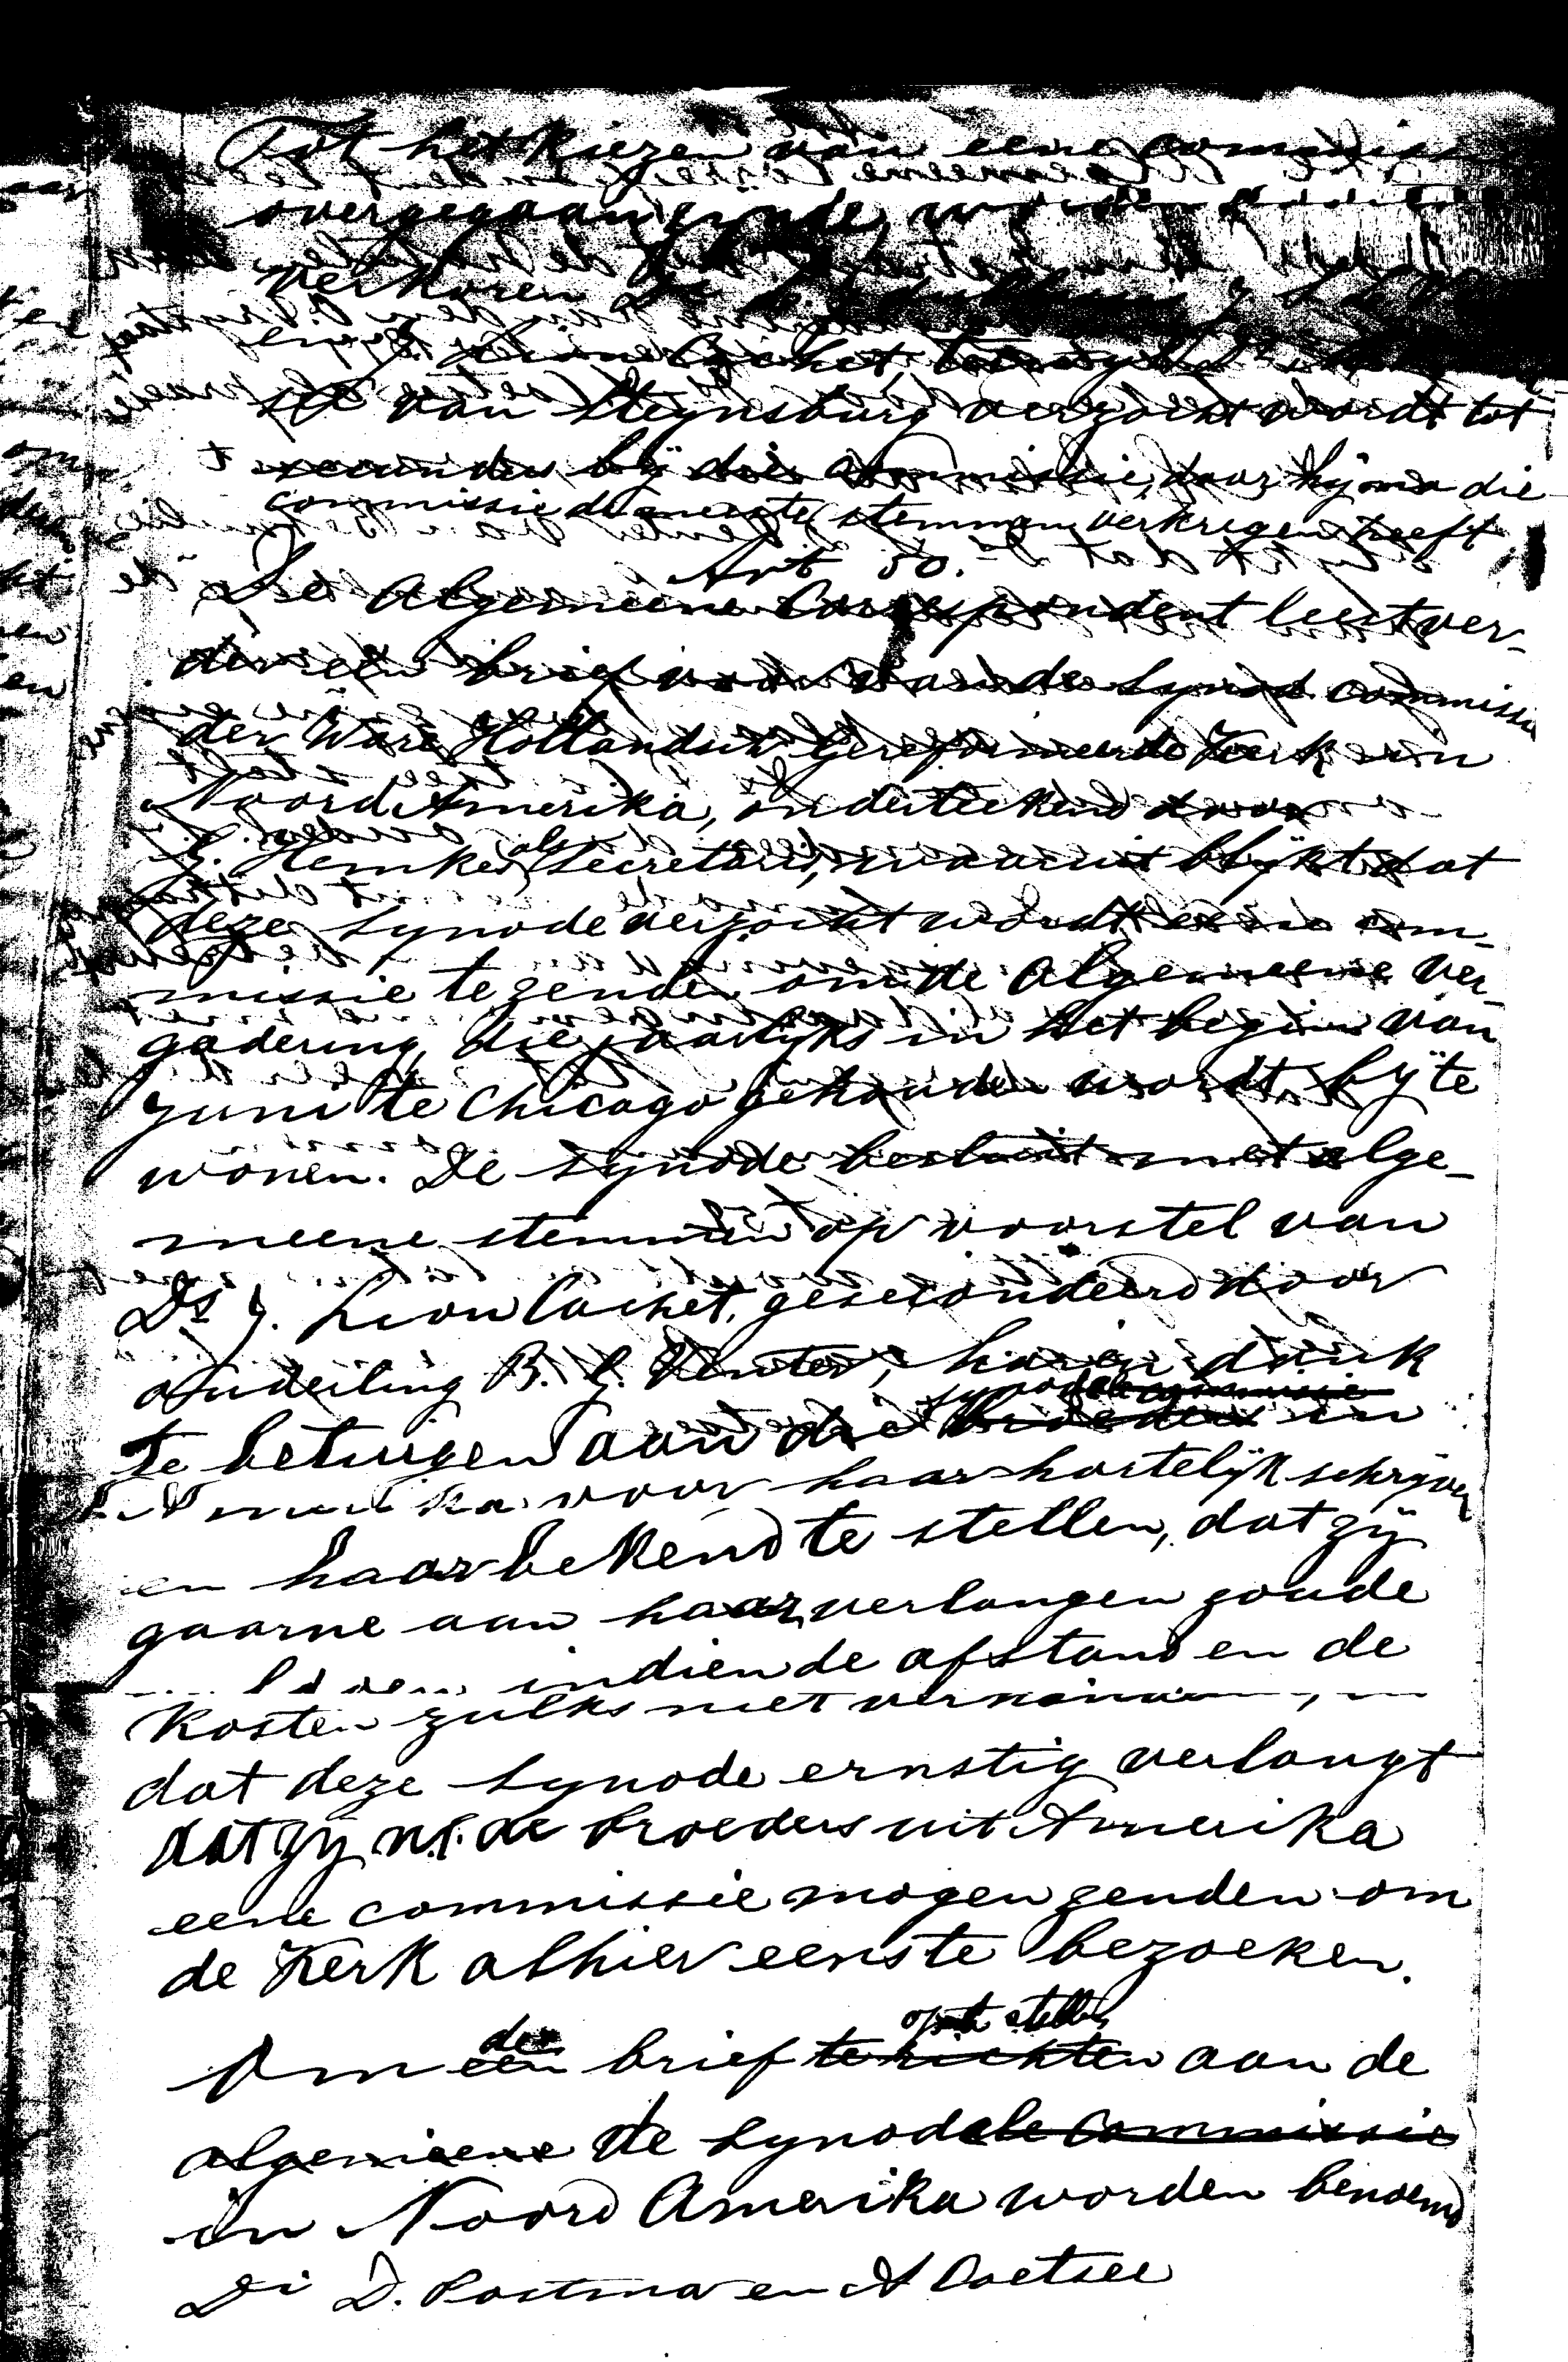 Tot het kiezen van eene commissie
overgegaan zynde, worden
verkoren Ds
Lion Cachet, terwyl Ds
see van Steynsburg verzocht wordt tot
secundus bÿ die commissie, daar hÿ na die
commissie de meeste stemmen verkregen heeft
Art 50.
De Algemeene Correspondent leest ver-
der een brief voor van de Synod. commissie
der Ware Hollandsch Gereformeerde Kerk in
Noord Amerika, onderteekend door
J. Hemkes als Secretaris, waaruit blÿkt dat
deze Synode verzocht wordt eene com-
missie te zenden om de Algemeene Ver-
gadering, die jaarlÿks in het begin van
Juni te Chicago gehouden wordt, bÿ te
wonen. De Synode besluit met alge-
meene stemmen op voorstel van
Ds J. Lion Cachet, gesecondeerd door
ouderling B. J. Venter, haren dank
synodale commissie
te betuigen aan de broeders in
N. Amerika voor haar hartelÿk schrÿven
en haar bekend te stellen, dat zÿ
gaarne aan haar verlangen zoude
indien de afstand en de
kosten zulks niet
dat deze Synode ernstig verlangt
dat zÿ n.l. de broeders uit Amerika
eene commissie mogen zenden om
de Kerk alhier eens te bezoeken.
den op te stellen
Om een brief te richten aan de
algemeene de Synodale Commissie
in Noord Amerika worden benoemd
Di D. Postma en A Coetsee